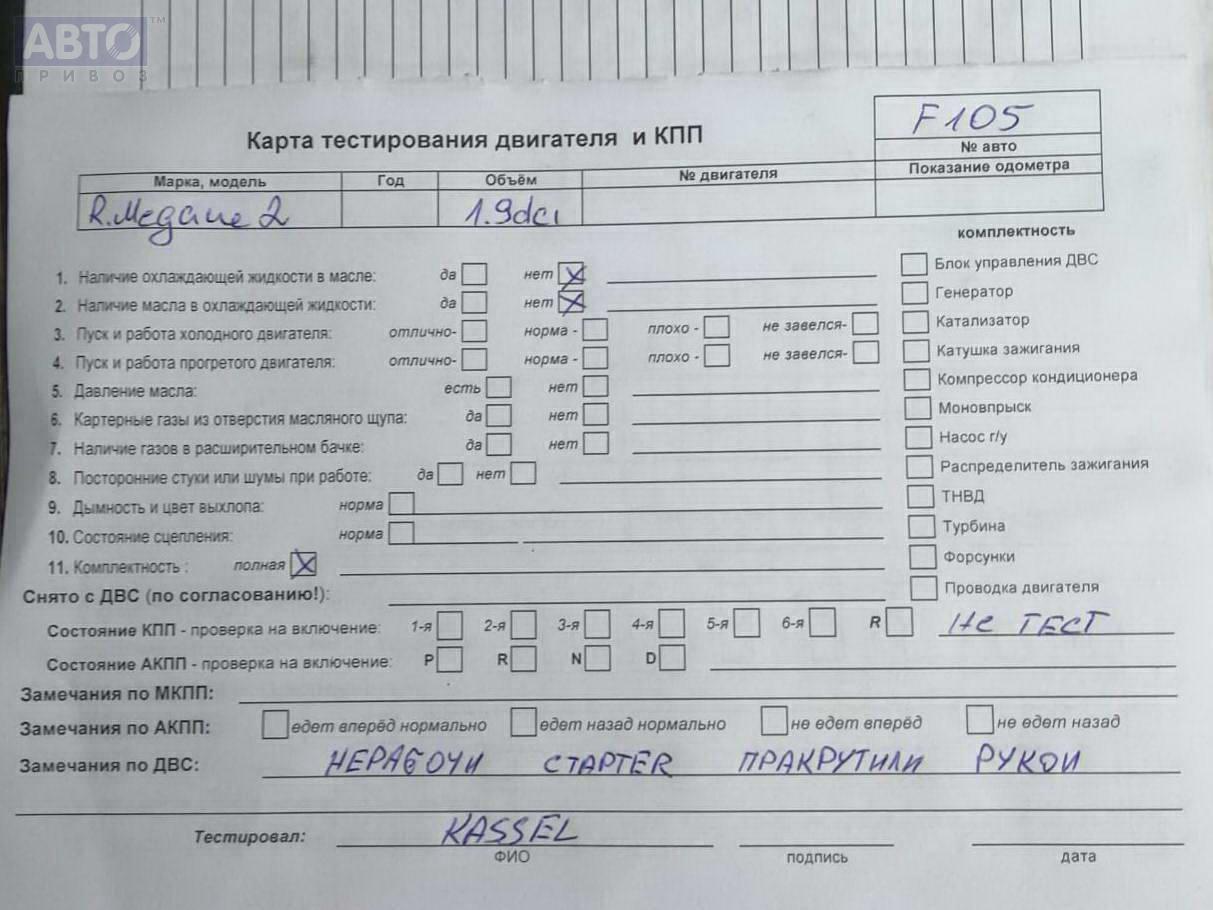 АВТО™
ПРИВОЗ
F105
Карта тестирования двигателя и КПП
№ авто
Марка, модель Год Объём № двигателя Показание одометра
R.Megane 2 1.9dci
комплектность
1. Наличие охлаждающей жидкости в масле: да нет X
Блок управления ДВС
2. Наличие масла в охлаждающей жидкости: да нет X
Генератор
3. Пуск и работа холодного двигателя: отлично- норма - плохо - не завелся-
Катализатор
4. Пуск и работа прогретого двигателя: отлично- норма - плохо - не завелся-
Катушка зажигания
5. Давление масла: есть нет
Компрессор кондиционера
6. Картерные газы из отверстия масляного щупа: да нет
Моновпрыск
7. Наличие газов в расширительном бачке: да нет
Насос г/у
8. Посторонние стуки или шумы при работе: да нет
Распределитель зажигания
9. Дымность и цвет выхлопа: норма
ТНВД
10. Состояние сцепления: норма
Турбина
11. Комплектность : полная X
Форсунки
Снято с ДВС (по согласованию!):
Проводка двигателя
Состояние КПП - проверка на включение: 1-я 2-я 3-я 4-я 5-я 6-я R Не ТЕСТ
Состояние АКПП - проверка на включение: P R N D
Замечания по МКПП:
Замечания по АКПП: едет вперёд нормально едет назад нормально не едет вперёд не едет назад
Замечания по ДВС: НЕРАБОЧИ СТАРТЕR ПРАКРУТИЛИ РУКОИ
Тестировал: KASSEL
ФИО подпись дата